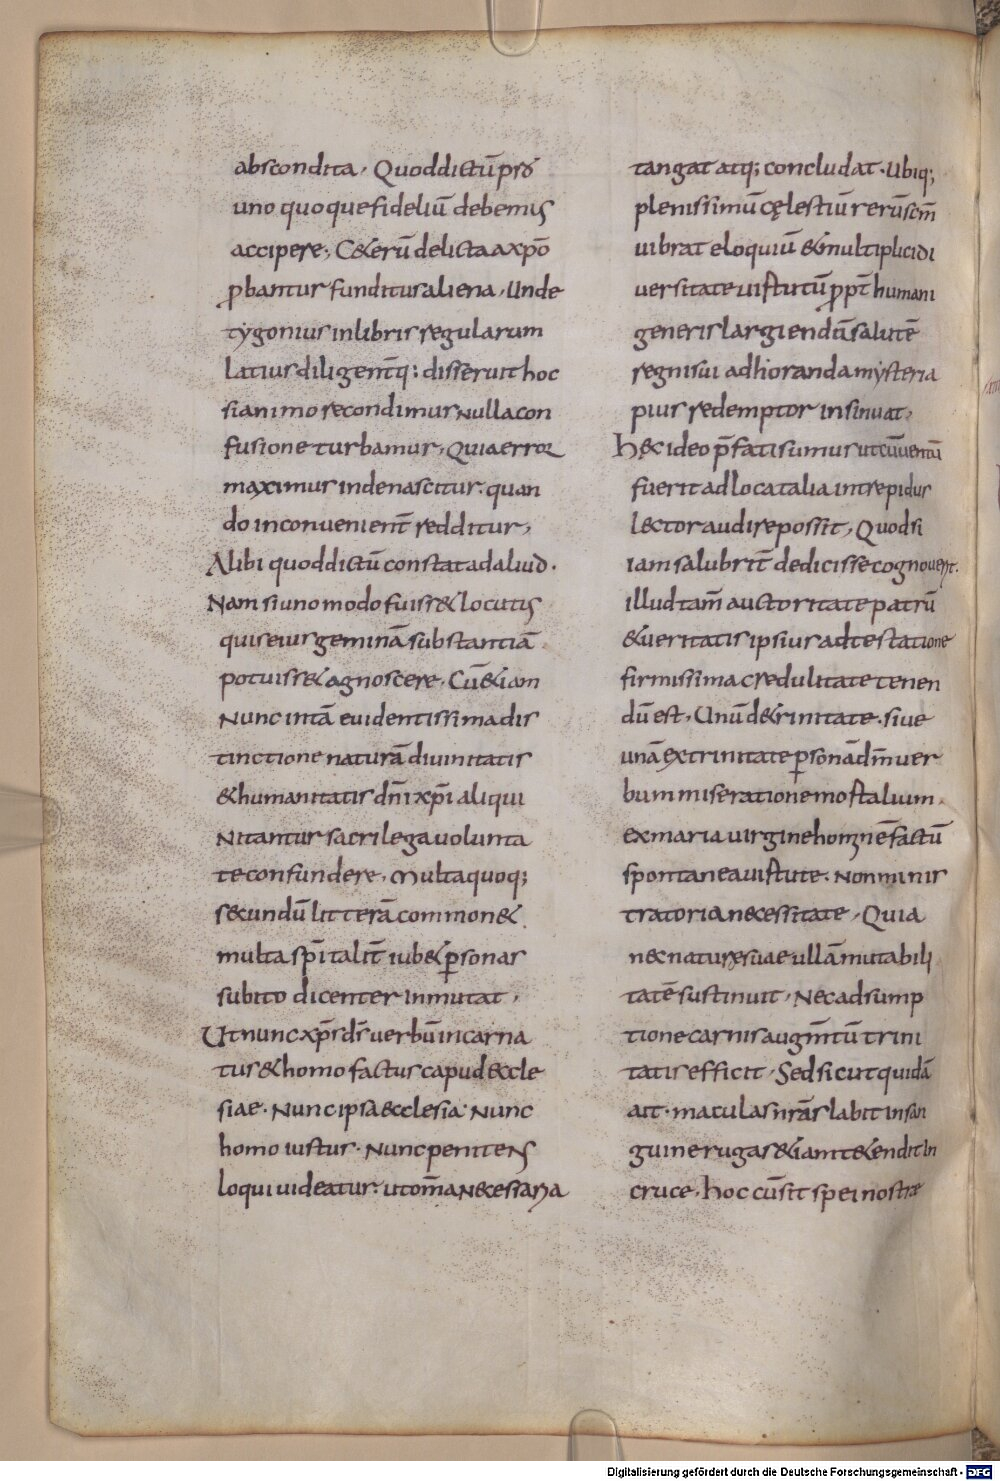 abscondita, Quoddictū p̄s &
uno quoque fidelium debemus
accipere; C&erū delicta a xp̄o
ꝓbantur funditus aliena, Unde
tygonius in libris regularum
latius diligent̄q; disseruit hoc
si animo recondimus nulla con
fusione turbamur, Quia error
maximus inde nascitur. quan
do inconuenient̄ redditur,
Alibi quod dictū constat ad aliud.
Nam si uno modo fuiss& locutus
quis eius geminā substantiā
potuiss& agnoscere, Cū &iam
Nunc intā euidentissima dis
tinctione naturā diuinitatis
& humanitatis dn̄i xp̄i aliqui
Nitantur sacrilega uolunta
te confundere, Multa quoq;
s&cundū litterā common&
multa sp̄italit̄ iub& ꝑsonas
subito dicentes inmutat,
Ut nunc xp̄s ds̄ uerbū incarna
tus & homo factus capud &cle
siae. Nunc ipsa &cclesia. Nunc
homo iustus. Nunc penitens
loqui uideatur: ut om̄a necessaria
tangat atq; concludat. Ubiq;
plenissimū cęlestiū rerū scm̄
uibrat eloquiū & multiplici di
uersitate uirtutū ꝓpt̄ humani
generis largiendā salutē
regni sui adhoranda mysteria
pius redemptor insinuat,
H&c ideo p̄fati sumus ut cū uentū
fuerit ad loca talia intrepidus
l&tor audire possit, Quod si
iam salubrit̄ dedicisse cognouerit.
illud tam̄ auctoritate patrū
& ueritatis ipsius adtestatione
firmissima credulitate tenen
dū est, Unū de trinitate. siue
unā ex trinitate ꝑsonā dn̄m uer
bum miseratione mortalium.
ex maria uirgine hominē factū
spontanea uirtute. Non minis
tratoria necessitate, Quia
nec naturę suae ullā mutabili
tatē sustinuit, Nec adsump
tione carnis augm̄tū trini
tatis efficit, Sed sicut quidā
ait. maculas nr̄as labit in san
guine rugas &iam t&endit in
cruce, hoc cū sit spei nostrae
Digitalisierung gefördert durch die Deutsche Forschungsgemeinschaft - DFG